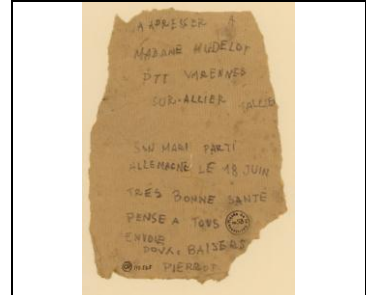 A ADRESSER A
MADAME HUDELOT
PTT VARENNES
SUR-ALLIER (ALLIER)
SON MARI PARTI
ALLEMAGNE LE 18 JUIN
TRES BONNE SANTÉ
PENSE A TOUS
ENVOIE
DOUX BAISERS
PIERROT